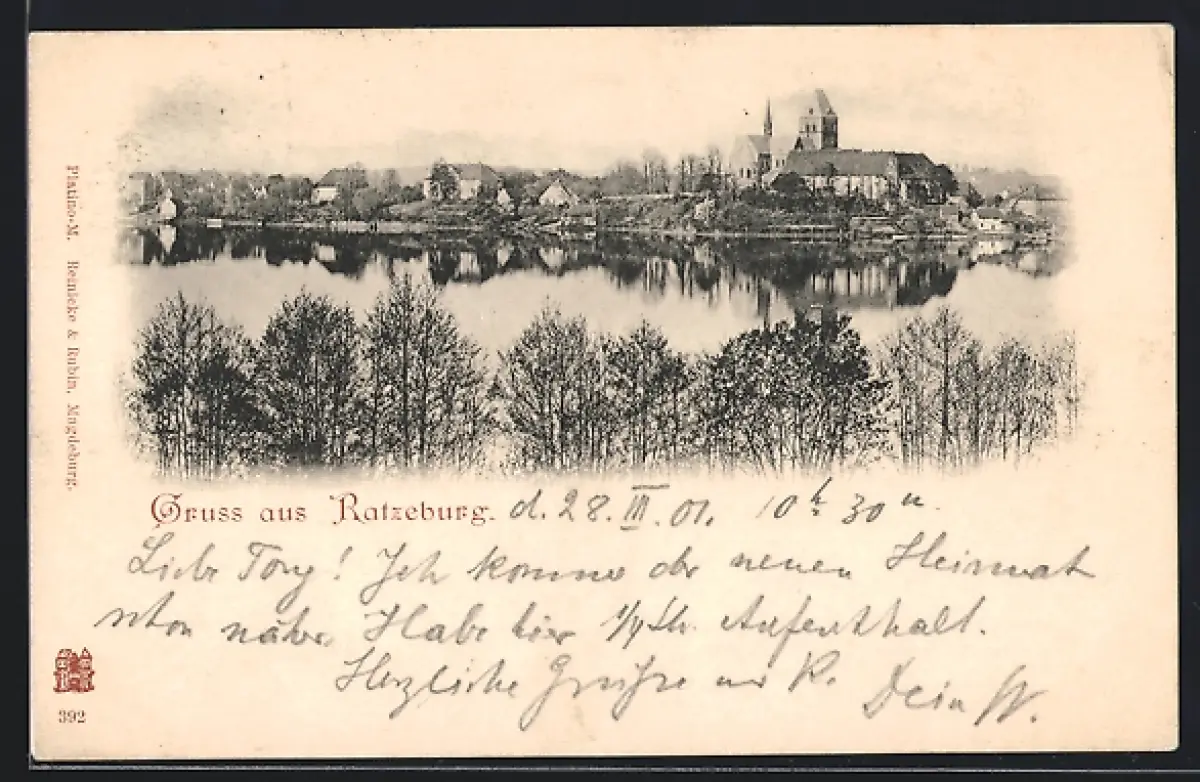 Platino-M. Reinicke & Rubin, Magdeburg.
Gruss aus Ratzeburg. d. 28. III. 01. 10 h 30 m.
Liebe Tony! Ich komme der neuen Heimat
schon näher. Habe hier 1/4 St. Aufenthalt.
Herzliche Grüsse u. K. Dein W.
392